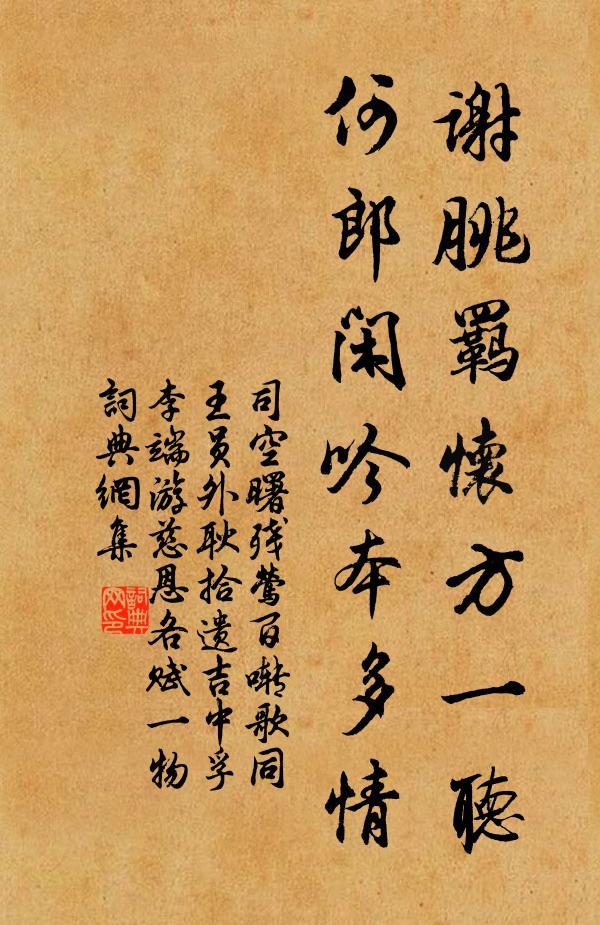 謝朓羈懷方一聽
何郎閑吟本多情
司空曙殘鶯百囀歌同
王員外耿拾遺吉中孚
李端游慈恩各賦一物
詞典網集
詞典
网印